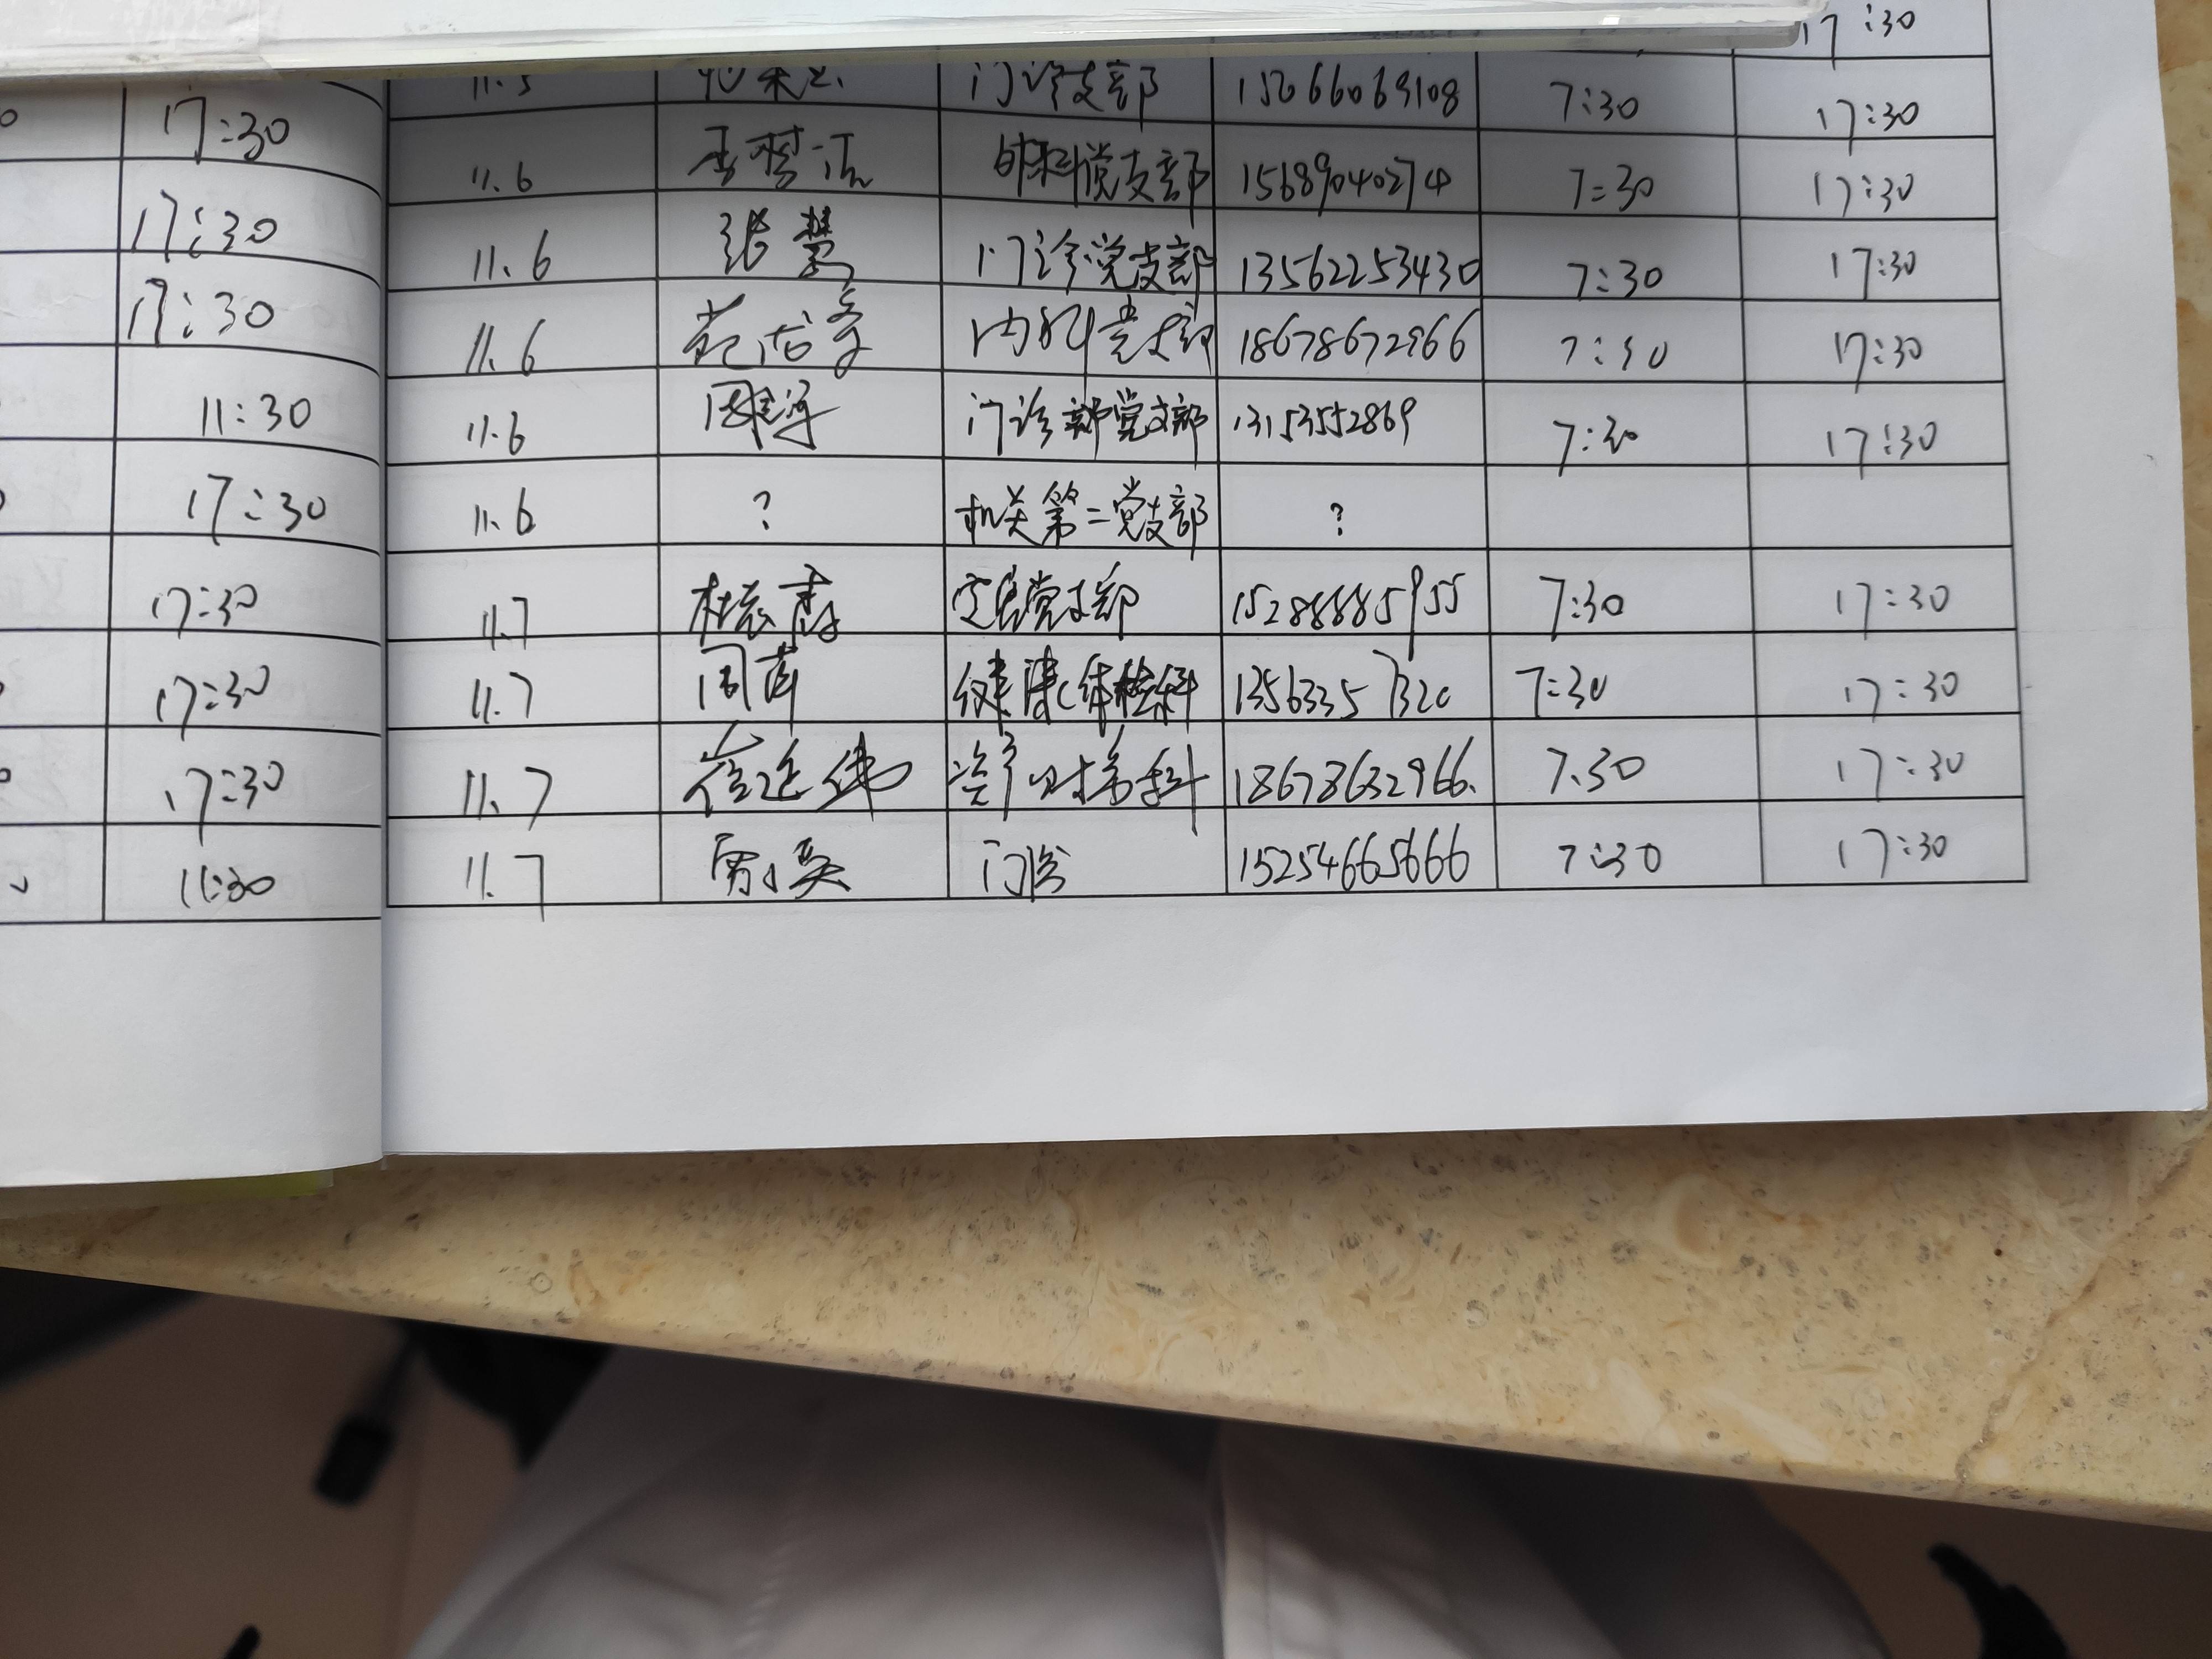 17:30
17:30
17:30
11:30
17:30
17:30
17:30
17:30
11:30
17:30
11.5 门诊支部 15066069108 7:30 17:30
11.6 党支部 15689040274 7:30 17:30
11.6 张慧 门诊党支部 13562253430 7:30 17:30
11.6 内科党支部 18678672966 7:30 17:30
11.6 门诊部党支部 13153552869 7:30 17:30
11.6 ? 机关第二党支部 ?
11.7 党支部 15288885955 7:30 17:30
11.7 周莉 健康体检科 13563357320 7:30 17:30
11.7 崔延伟 18678632966. 7.30 17:30
11.7 门诊 15254665666 7:30 17:30